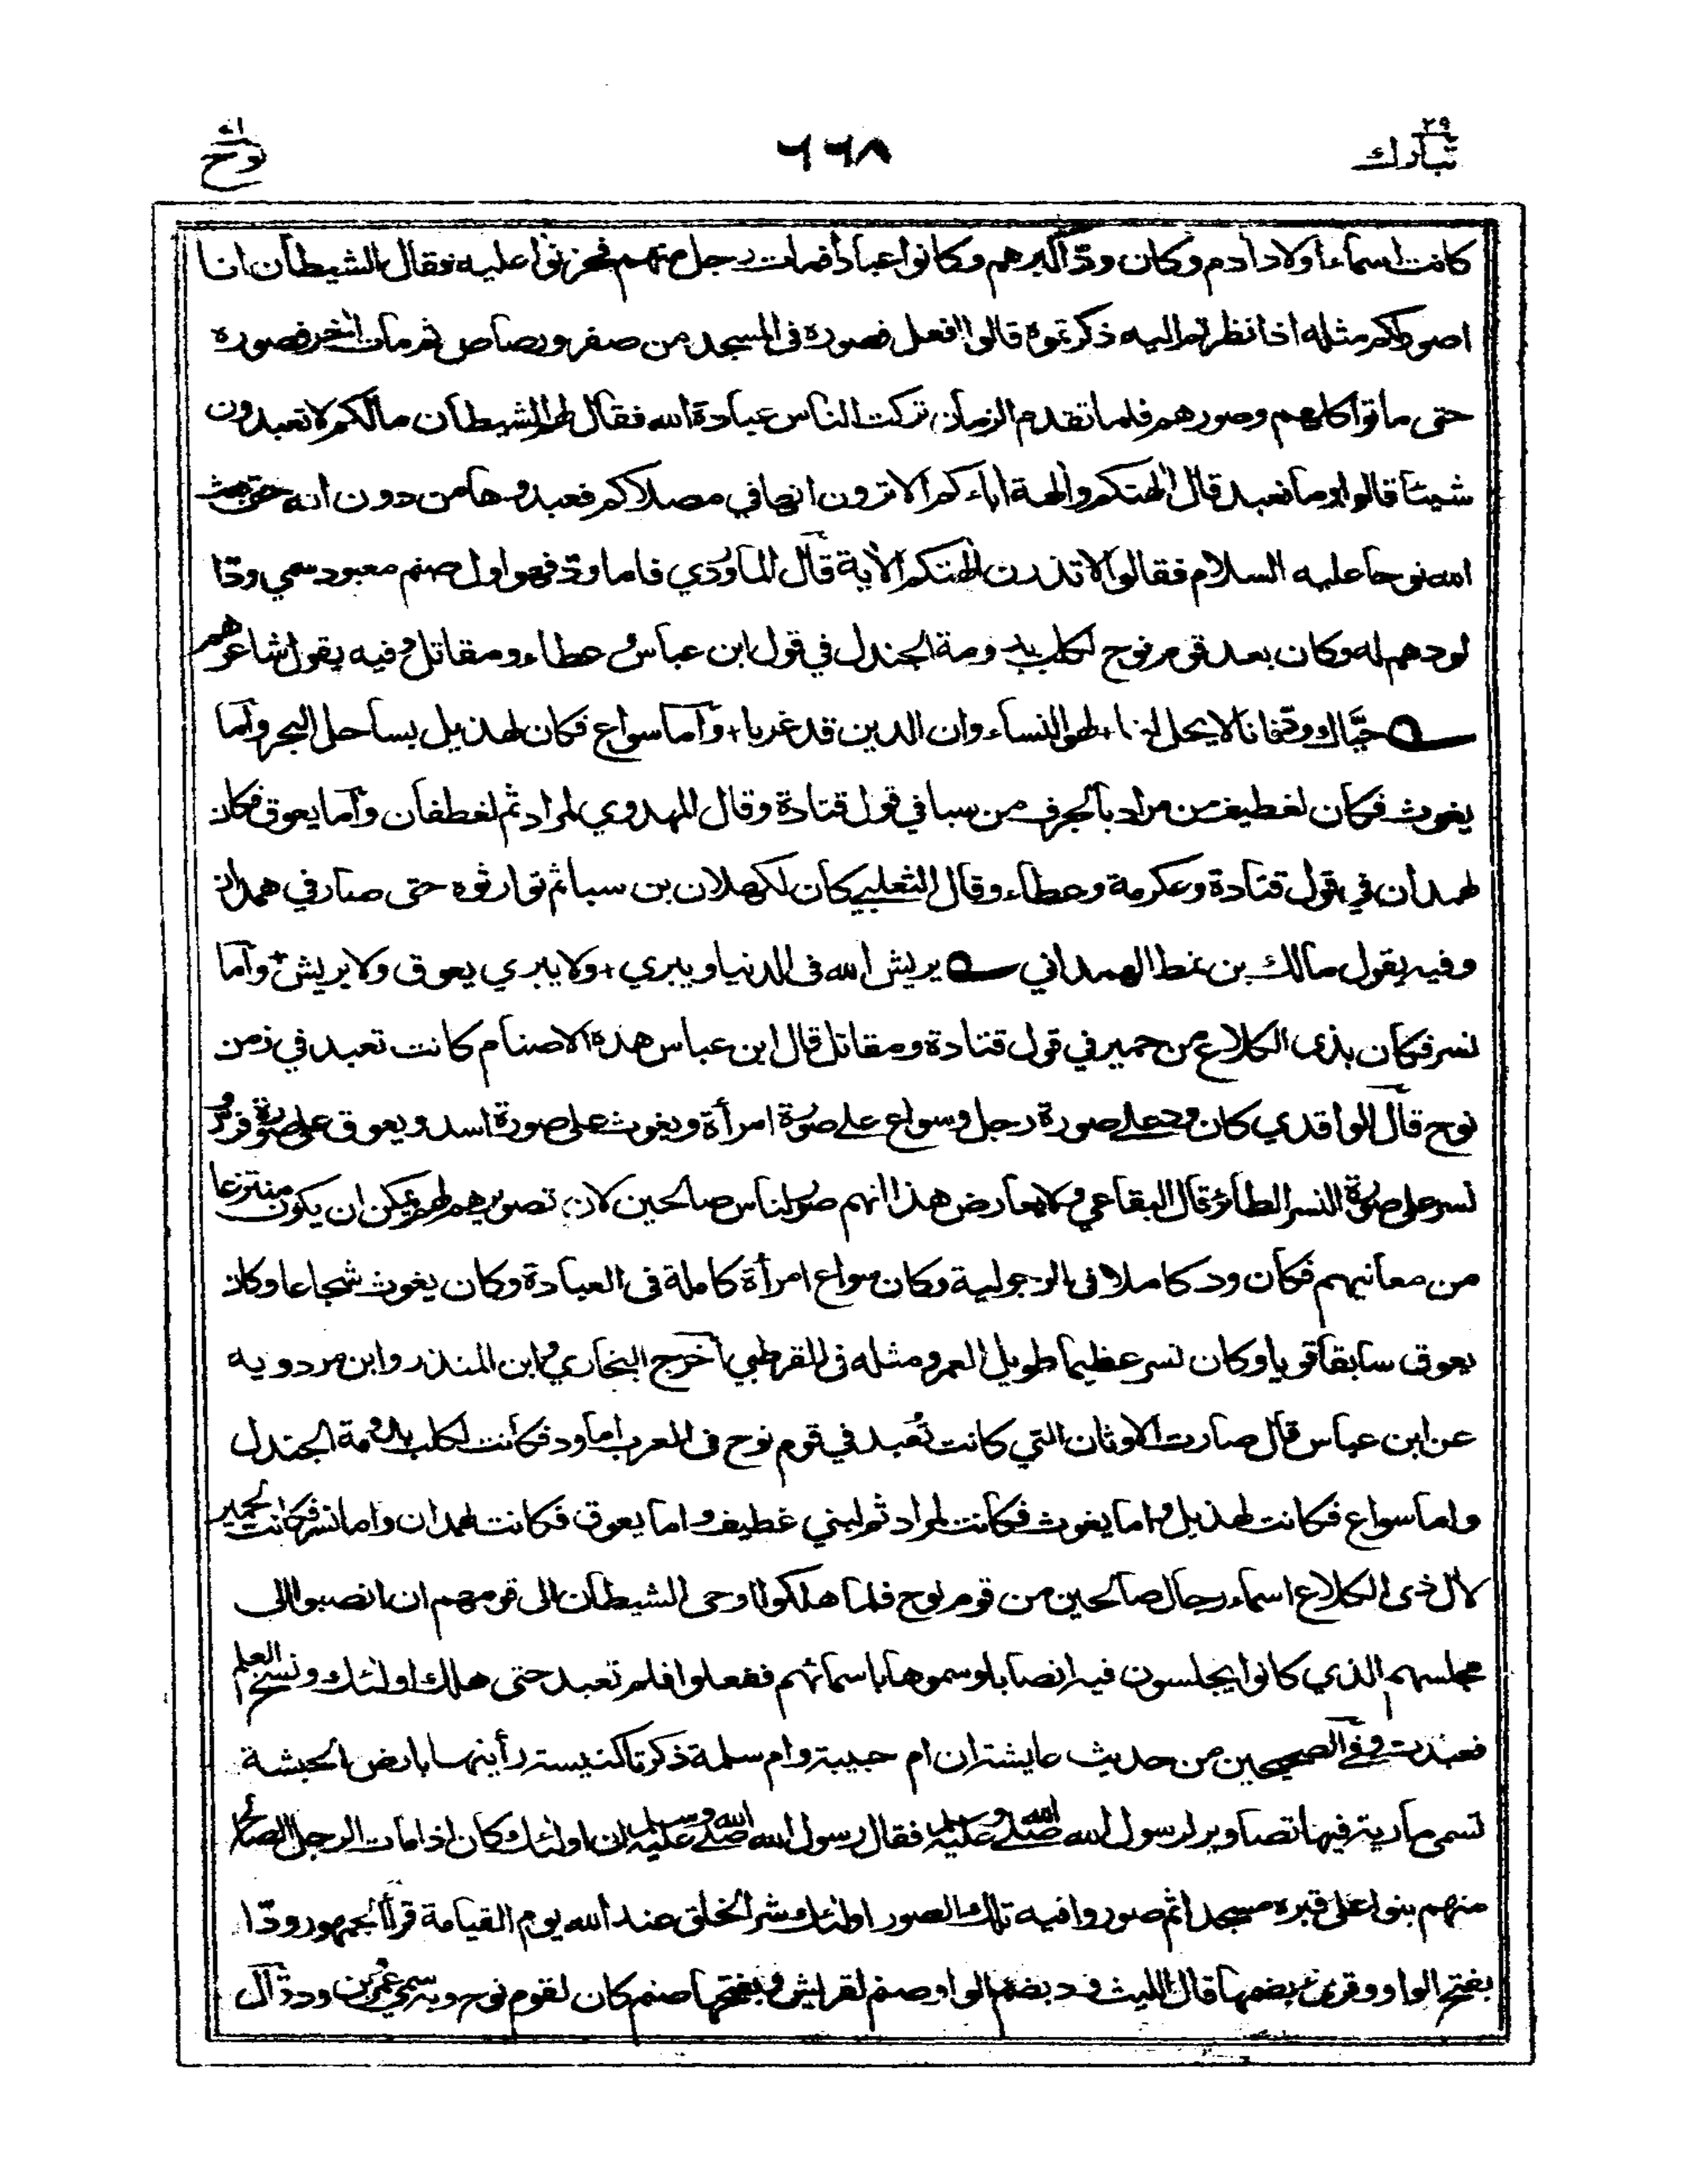 تبارك ٢٩
٦٦٨
نوح ٧١
كانت اسماء اولاد ادم وكان ودّ اكبرهم وكانوا عبادا فمات رجل منهم فحزنوا عليه فقال الشيطان انا
اصور لكم مثله اذا نظرتم اليه ذكرتموه قالوا افعل فصوره فى المسجد من صفر ورصاص ثم مات اخر فصوره
حتى ماتوا كلهم وصورهم فلما تقدم الزمان تركت الناس عبادة الله فقال لهم الشيطان مالكم لا تعبدون
شيئا قالوا وما نعبد قال الهتكم والهة اباءكم الا ترون انها في مصلاكم فعبدوها من دون الله حتى بعث
الله نوحا عليه السلام فقالوا لا تذرن الهتكم الاية قال الماوردي فاما ودّ فهو اول صنم معبود سمي ودّا
لودهم له وكان بعد قوم نوح لكلب بدومة الجندل في قول ابن عباس وعطاء ومقاتل وفيه يقول شاعرهم
حيّاك ودّ فانا لا يحل لنا + لهو النساء وان الدين قد غربا + وأما سواع فكان لهذيل بساحل البحر وأما
يغوث فكان لغطيف من مراد بالجرف من سبا في قول قتادة وقال المهدوي لمراد ثم لغطفان وأما يعوق فكان
لهمدان في قول قتادة وعكرمة وعطاء وقال الثعلبي كان لكهلان بن سبا ثم توارثوه حتى صار في همدان
وفيه يقول مالك بن نمط الهمداني يريش الله فى الدنيا ويبري + ولا يبري يعوق ولا يريش + وأما
نسر فكان بذى الكلاع من حمير في قول قتادة ومقاتل قال ابن عباس هذه الاصنام كانت تعبد في زمن
نوح قال الواقدي كان ود على صورة رجل وسواع على صورة امرأة ويغوث على صورة اسد ويعوق على صورة فرس و
نسر على صورة النسر الطائر قال البقاعي ولا يعارض هذا انهم صور لناس صالحين لان تصويرهم لهم يمكن ان يكون منتزعا
من معانيهم فكان ود كاملا فى الرجولية وكان سواع امرأة كاملة فى العبادة وكان يغوث شجاعا وكان
يعوق سابقا قويا وكان نسر عظيما طويل العمر ومثله فى القرطبي أخرج البخاري وابن المنذر وابن مردويه
عن ابن عباس قال صارت الاوثان التي كانت تعبد في قوم نوح فى العرب اما ود فكانت لكلب بدومة الجندل
واما سواع فكانت لهذيل واما يغوث فكانت لمراد ثم لبني غطيف واما يعوق فكانت لهمدان واما نسر فكانت لحمير
لال ذى الكلاع اسماء رجال صالحين من قوم نوح فلما هلكوا اوحى الشيطان الى قومهم ان انصبوا الى
مجلسهم الذي كانوا يجلسون فيه انصابا وسموها باسمائهم ففعلوا فلم تعبد حتى هلك اولئك ونسخ العلم
فعبدت وفي الصحيحين من حديث عايشة ان ام حبيبة وام سلمة ذكرتا كنيسة رأينها بارض الحبشة
تسمى مارية فيها تصاوير لرسول الله صلى الله عليه وسلم فقال رسول الله صلى الله عليه وسلم ان اولئك كان اذا مات الرجل الصالح
منهم بنوا على قبره مسجدا ثم صوروا فيه تلك الصور اولئك شر الخلق عند الله يوم القيامة قرأ الجمهور ودّا
بفتح الواو وقرئ بضمها قال الليث ود بضم الواو صنم لقريش وبفتحها صنم كان لقوم نوح وبه سمي عمرو بن ود قال